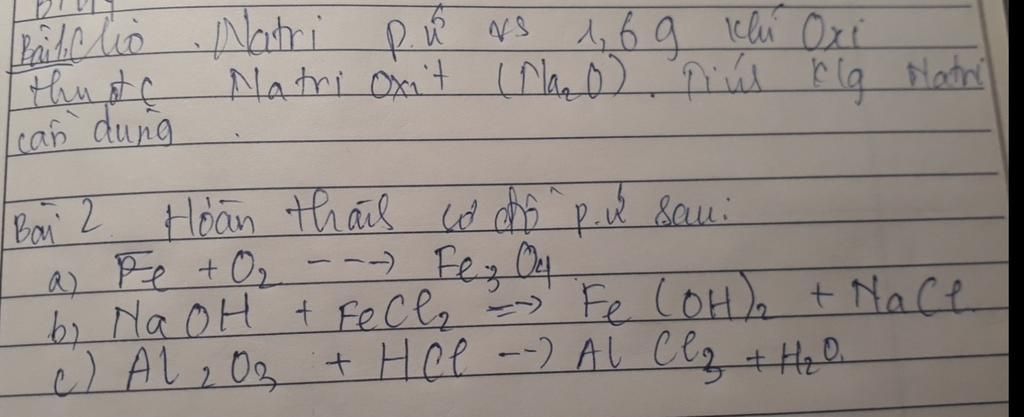 Bài 1. Cho Natri p.ứ vs 1,6g khí Oxi
thu đc Natri oxit (Na₂O). Tính klg Natri
cần dùng.
Bài 2 Hoàn thành sơ đồ p.ứ sau:
a) Fe + O₂ ---> Fe₃O₄
b) NaOH + FeCl₂ => Fe(OH)₂ + NaCl
c) Al₂O₃ + HCl --> AlCl₃ + H₂O.